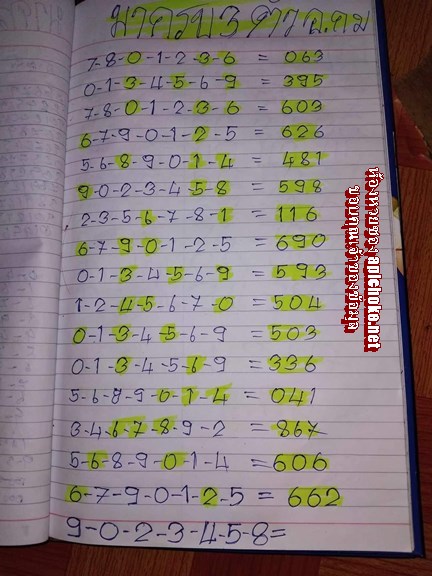 มาครบ 3 ตัว ฉ.คม
7-8-0-1-2-3-6 = 063
0-1-3-4-5-6-9 = 395
7-8-0-1-2-3-6 = 603
6-7-9-0-1-2-5 = 626
5-6-8-9-0-1-4 = 481
9-0-2-3-4-5-8 = 598
2-3-5-6-7-8-1 = 116
6-7-9-0-1-2-5 = 690
0-1-3-4-5-6-9 = 593
1-2-4-5-6-7-0 = 504
0-1-3-4-5-6-9 = 503
0-1-3-4-5-6-9 = 336
5-6-8-9-0-1-4 = 041
3-4-6-7-8-9-2 = 867
5-6-8-9-0-1-4 = 606
6-7-9-0-1-2-5 = 662
9-0-2-3-4-5-8=
ห้องหวยซอง aplchoke.net
ขอบคุณเจ้าของข้อมูล